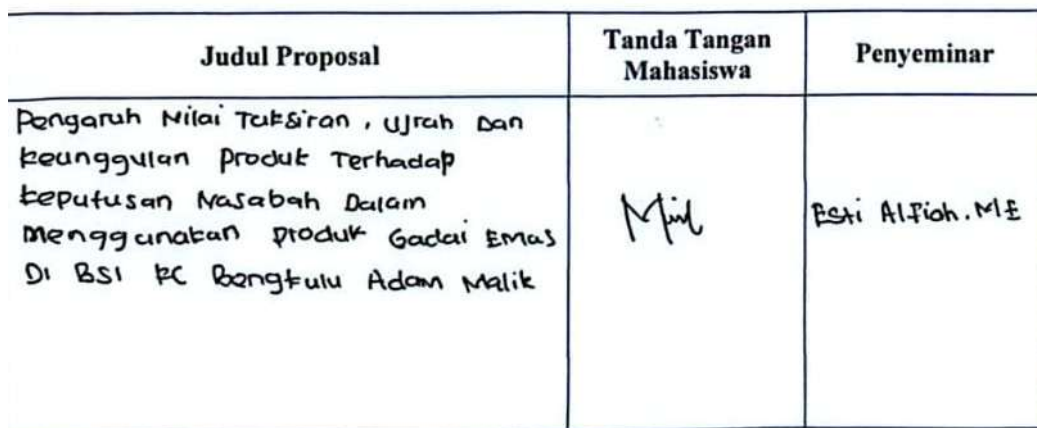 Judul Proposal
Tanda Tangan
Mahasiswa
Penyeminar
Pengaruh Nilai Taksiran, Ujrah Dan
keunggulan Produk Terhadap
keputusan Nasabah Dalam
Menggunakan produk Gadai Emas
Di BSI KC Bengkulu Adam Malik
Esti Alfiah. ME